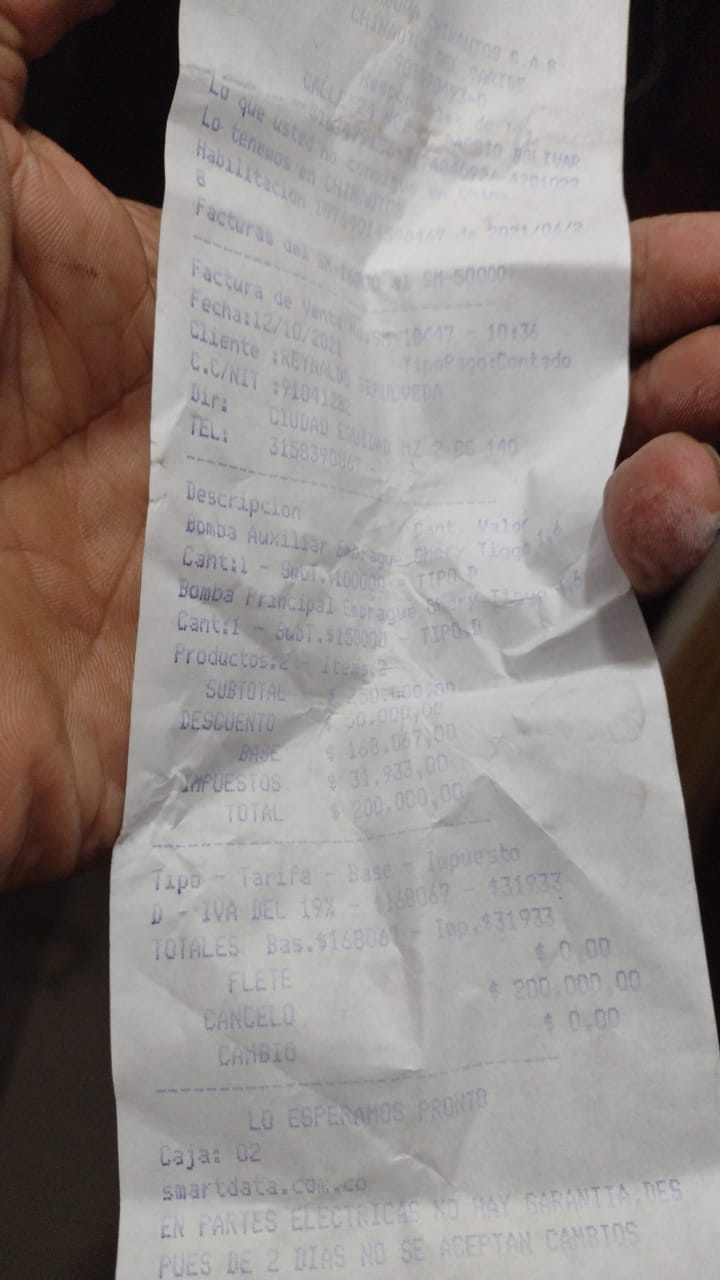 CHINAUTOS S.A.S
CHINAUTOS DEL CARIBE
Responsables de Iva
CALLE 24 BARRIO BOLIVAR
Lo que usted no consigue en China
Lo tenemos en CHINAUTOS
Habilitacion de 2021/04/2
8
Facturas del SM-10000 al SM-50000
Factura de Venta No.SM-18447 - 10:36
Fecha:12/10/2021 TipoPago:Contado
Cliente :REYNALDO SEPULVEDA
C.C/NIT :91041282
Dir: CIUDAD EQUIDAD MZ 2 CS 140
TEL: 3158390867 -
Descripcion Cant. Valor
Bomba Auxiliar Embrague Chery Tiggo 1.6
Cant:1 - SubT.$100000 - TIPO.D
Bomba Principal Embrague Chery Tiggo 1.6
Cant:1 - SubT.$150000 - TIPO.D
Productos:2 - Items:2
SUBTOTAL $ 250.000,00
DESCUENTO $ 50.000,00
BASE $ 168.067,00
IMPUESTOS $ 31.933,00
TOTAL $ 200.000,00
Tipo - Tarifa - Base - Impuesto
D - IVA DEL 19% - $168067 - $31933
TOTALES Bas.$168067 - Imp.$31933
FLETE $ 0,00
CANCELO $ 200.000,00
CAMBIO $ 0,00
LO ESPERAMOS PRONTO
Caja: 02
smartdata.com.co
EN PARTES ELECTRICAS NO HAY GARANTIA.DES
PUES DE 2 DIAS NO SE ACEPTAN CAMBIOS